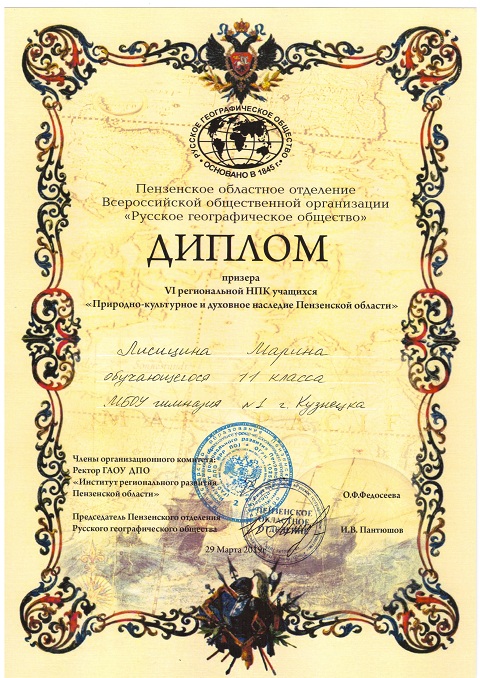 РУССКОЕ ГЕОГРАФИЧЕСКОЕ ОБЩЕСТВО
• ОСНОВАНО В 1845 г. •
Пензенское областное отделение
Всероссийской общественной организации
«Русское географическое общество»
ДИПЛОМ
призера
VI региональной НПК учащихся
«Природно-культурное и духовное наследие Пензенской области»
Лисицина Марина
обучающегося 11 класса
МБОУ гимназия №1 г. Кузнецка
Члены организационного комитета:
Ректор ГАОУ ДПО
«Институт регионального развития
Пензенской области»
О.Ф.Федосеева
ПЕНЗЕНСКОЕ
ОБЛАСТНОЕ
ОТДЕЛЕНИЕ
Председатель Пензенского отделения
Русского географического общества
И.В. Пантюшов
29 Марта 2019г.